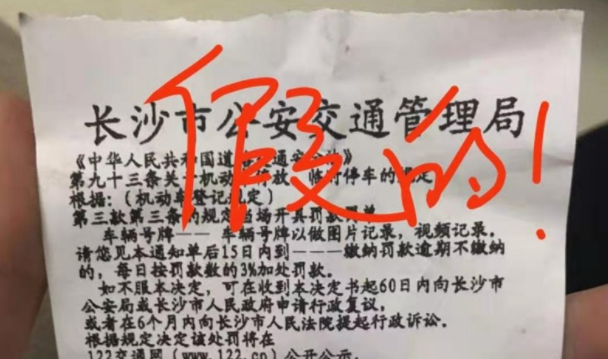 假的!
长沙市公安交通管理局
《中华人民共和国道 交通安 》
第九十三条关 机动 停放、临时停车的规定
根据:(机动车登记规定)
第三款第三条的规定当场开具罚款 单
车辆号牌—— 车辆号牌以做图片记录,视频记录。
请您见本通知单后15日内到———缴纳罚款逾期不缴纳
的,每日按罚款数的3%加处罚款。
如不服本决定,可在收到本决定书起60日内向长沙市
公安局或长沙市人民政府申请行政复议,
或者在6个月内向长沙市人民法院提起行政诉讼。
根据规定决定该处罚将在
122交通网(www.122.cn)公开公示。